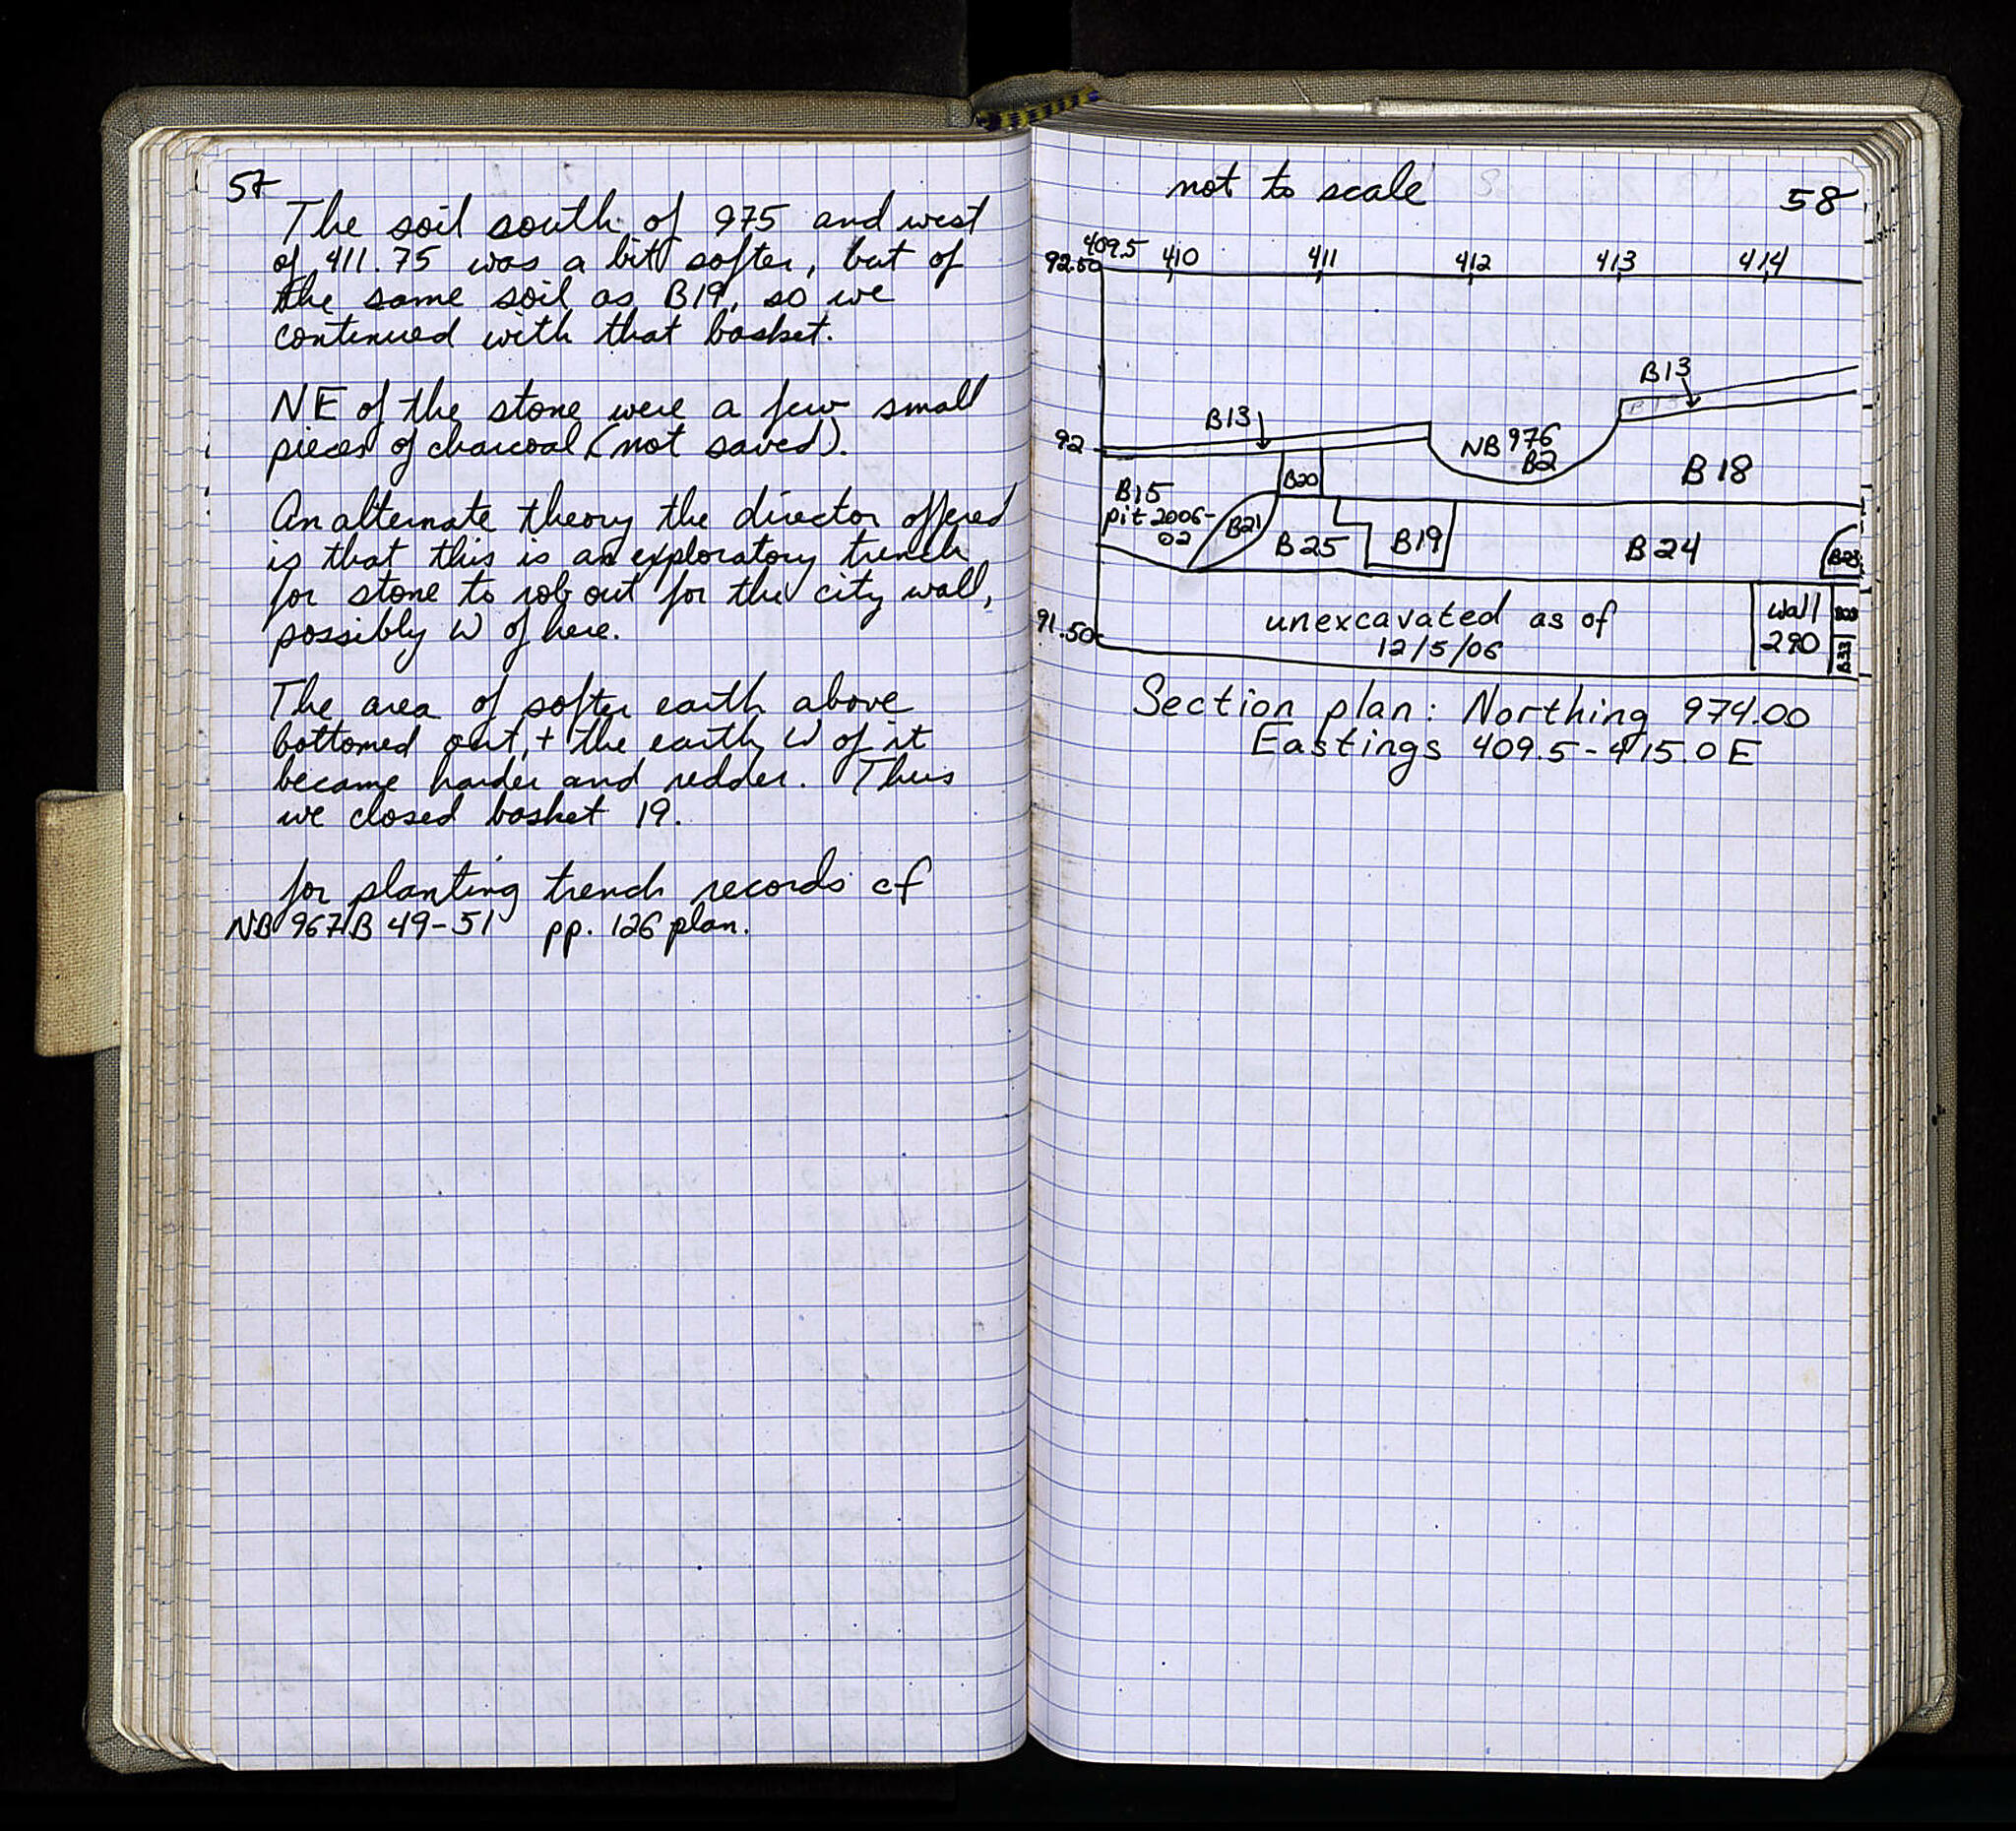 57
The soil south of 975 and west
of 411.75 was a bit softer, but of
the same soil as B19, so we
continued with that basket.
NE of the stone were a few small
pieces of charcoal (not saved).
An alternate theory the director offered
is that this is an exploratory trench
for stone to rob out for the city wall,
possibly W of here.
The area of softer earth above
bottomed out, + the earth W of it
became harder and redder. Thus
we closed basket 19.
for planting trench records cf
NB 967 B 49-51 pp. 126 plan.
not to scale
58
409.5 410 411 412 413 414
92.50
B13
B13
B13
92
NB 976
B2
B18
B20
B15
pit 2006-
02
B21
B25
B19
B24
91.50
unexcavated as of
12/5/06
wall
290
B33
Section plan: Northing 974.00
Eastings 409.5-415.0 E